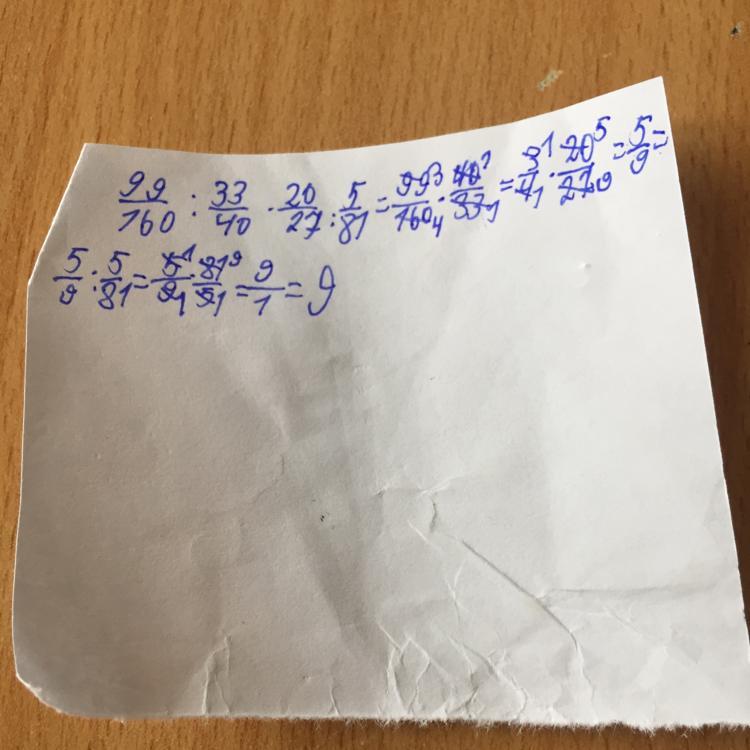 99/160 : 33/40 · 20/27 : 5/81 = 99³/160₄ · 40¹/33₁ = 3¹/4₁ · 20⁵/27₉ = 5/9 =
5/9 : 5/81 = 5¹/9₁ · 81⁹/5₁ = 9/1 = 9